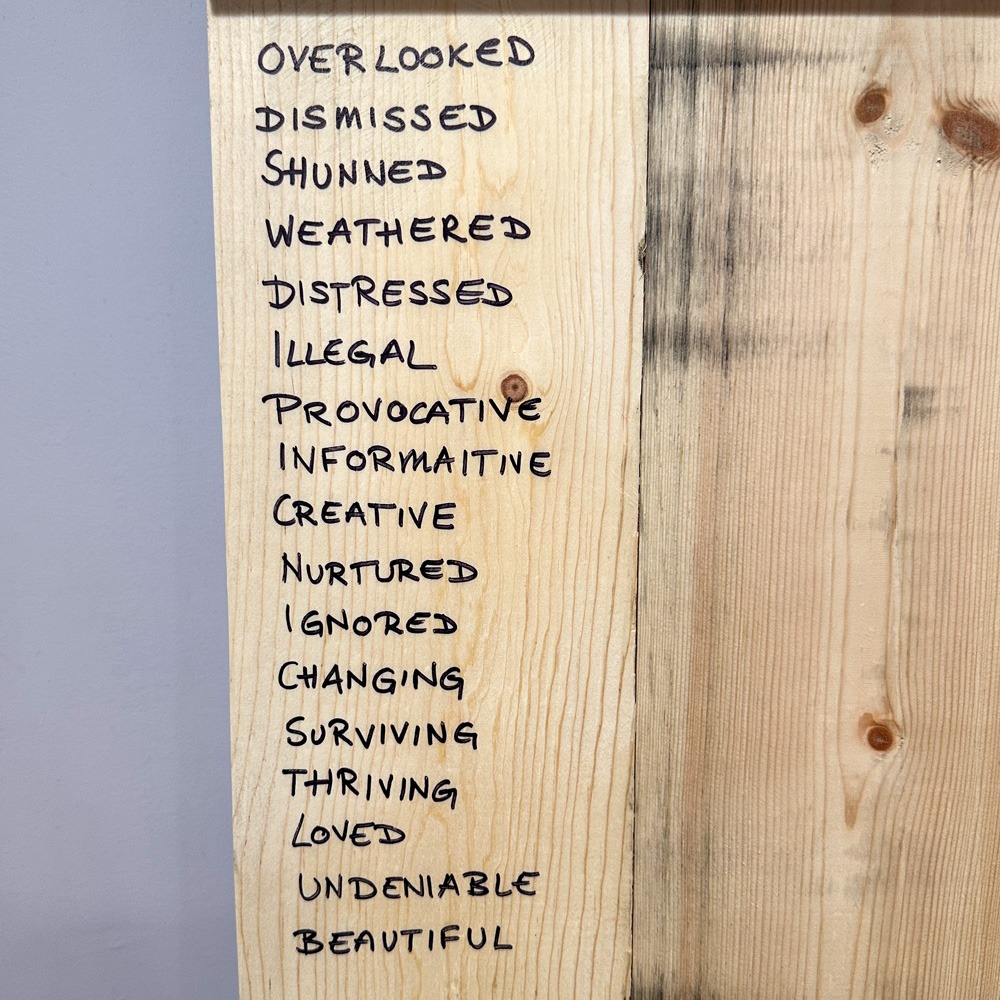 OVERLOOKED
DISMISSED
SHUNNED
WEATHERED
DISTRESSED
ILLEGAL
PROVOCATIVE
INFORMAITIVE
CREATIVE
NURTURED
IGNORED
CHANGING
SURVIVING
THRIVING
LOVED
UNDENIABLE
BEAUTIFUL